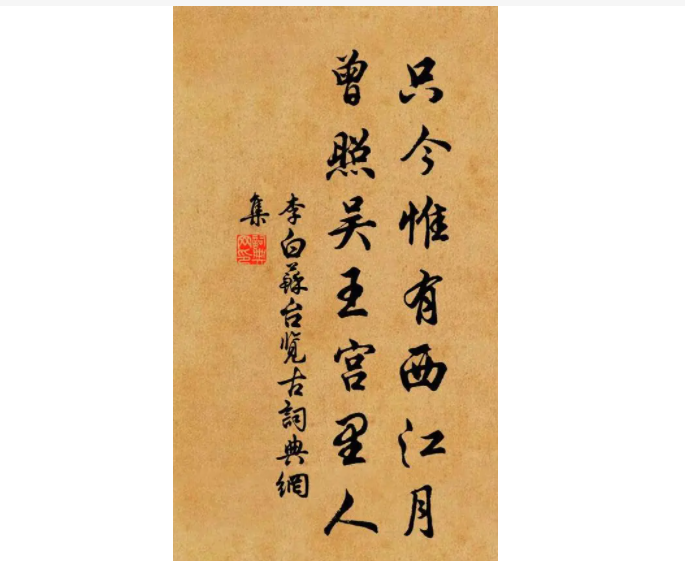 只今惟有西江月
曾照吴王宫里人
李白蘇台览古詞典網
集